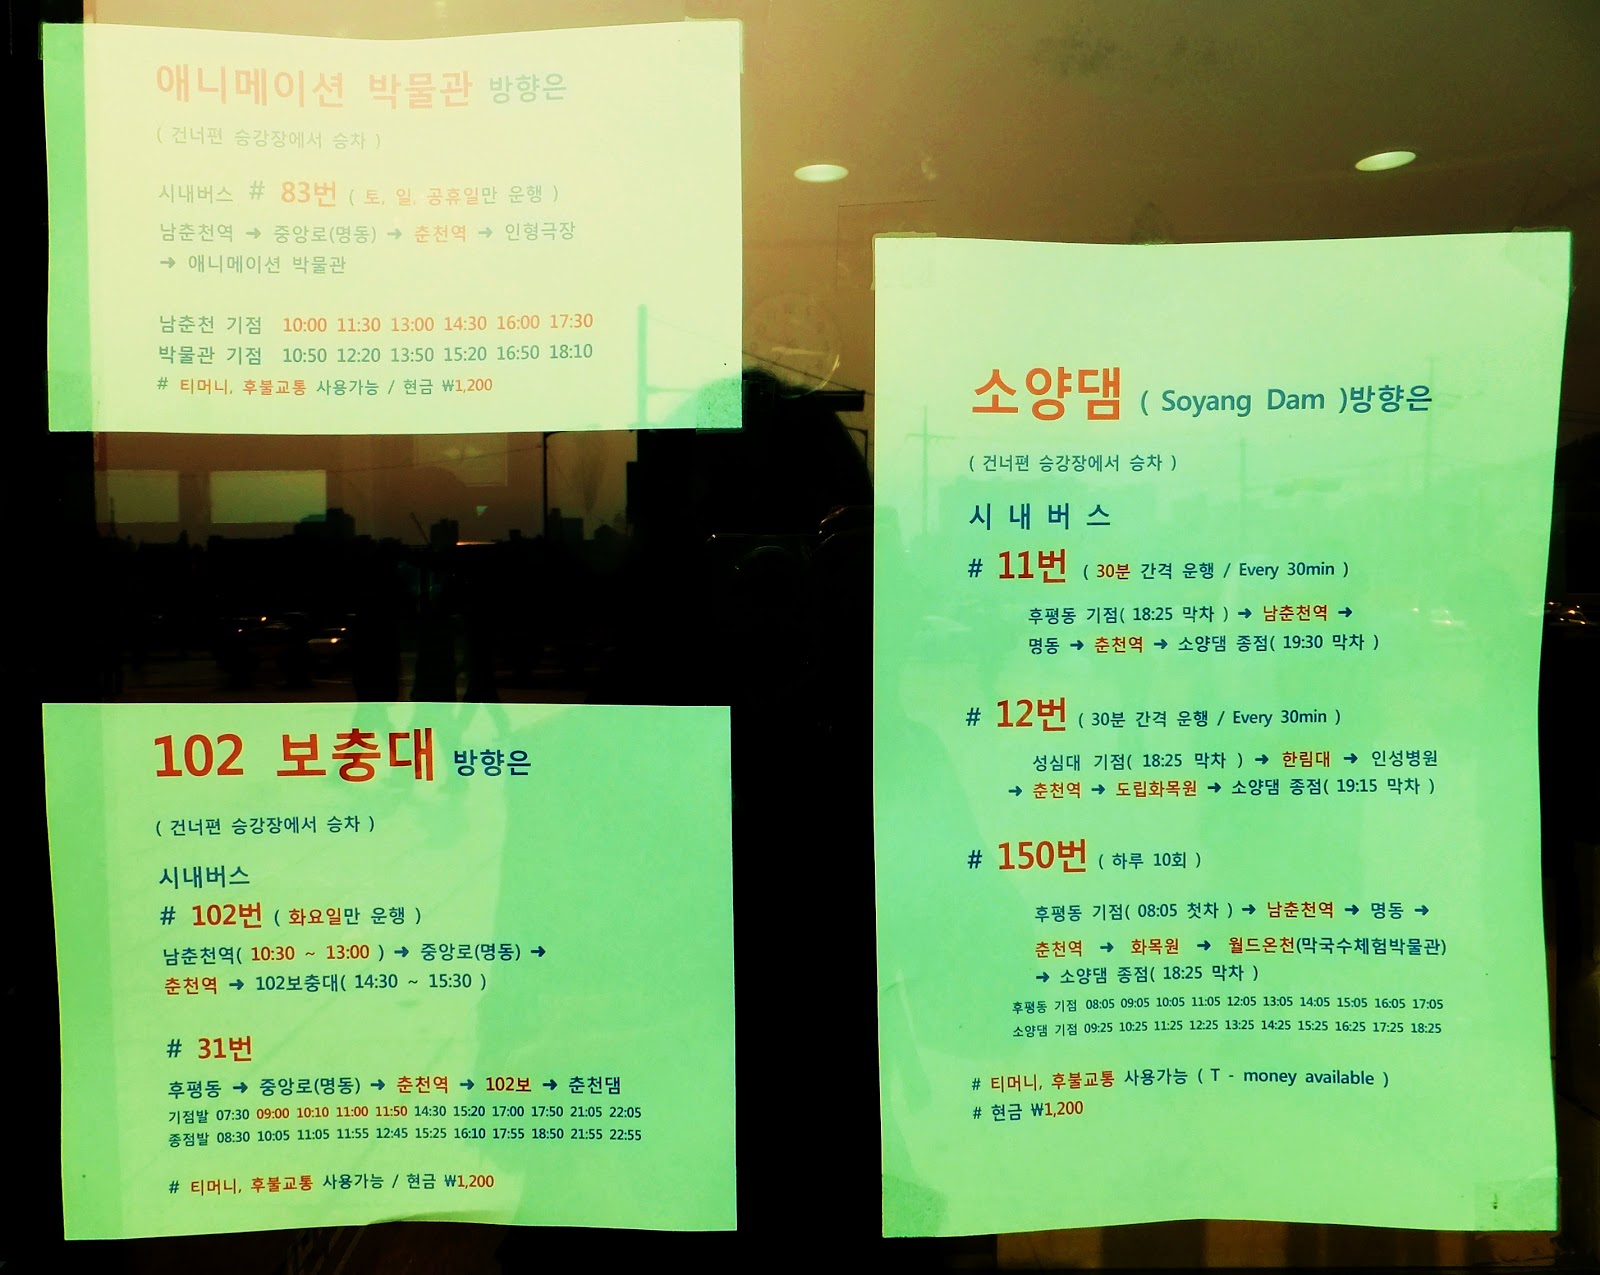 애니메이션 박물관 방향은
( 건너편 승강장에서 승차 )
시내버스 # 83번 ( 토, 일, 공휴일만 운행 )
남춘천역 → 중앙로(명동) → 춘천역 → 인형극장
→ 애니메이션 박물관
남춘천 기점 10:00 11:30 13:00 14:30 16:00 17:30
박물관 기점 10:50 12:20 13:50 15:20 16:50 18:10
# 티머니, 후불교통 사용가능 / 현금 ₩1,200
102 보충대 방향은
( 건너편 승강장에서 승차 )
시내버스
# 102번 ( 화요일만 운행 )
남춘천역( 10:30 ~ 13:00 ) → 중앙로(명동) →
춘천역 → 102보충대( 14:30 ~ 15:30 )
# 31번
후평동 → 중앙로(명동) → 춘천역 → 102보 → 춘천댐
기점발 07:30 09:00 10:10 11:00 11:50 14:30 15:20 17:00 17:50 21:05 22:05
종점발 08:30 10:05 11:05 11:55 12:45 15:25 16:10 17:55 18:50 21:55 22:55
# 티머니, 후불교통 사용가능 / 현금 ₩1,200
소양댐 ( Soyang Dam )방향은
( 건너편 승강장에서 승차 )
시 내 버 스
# 11번 ( 30분 간격 운행 / Every 30min )
후평동 기점( 18:25 막차 ) → 남춘천역 →
명동 → 춘천역 → 소양댐 종점( 19:30 막차 )
# 12번 ( 30분 간격 운행 / Every 30min )
성심대 기점( 18:25 막차 ) → 한림대 → 인성병원
→ 춘천역 → 도립화목원 → 소양댐 종점( 19:15 막차 )
# 150번 ( 하루 10회 )
후평동 기점( 08:05 첫차 ) → 남춘천역 → 명동 →
춘천역 → 화목원 → 월드온천(막국수체험박물관)
→ 소양댐 종점( 18:25 막차 )
후평동 기점 08:05 09:05 10:05 11:05 12:05 13:05 14:05 15:05 16:05 17:05
소양댐 기점 09:25 10:25 11:25 12:25 13:25 14:25 15:25 16:25 17:25 18:25
# 티머니, 후불교통 사용가능 ( T - money available )
# 현금 ₩1,200